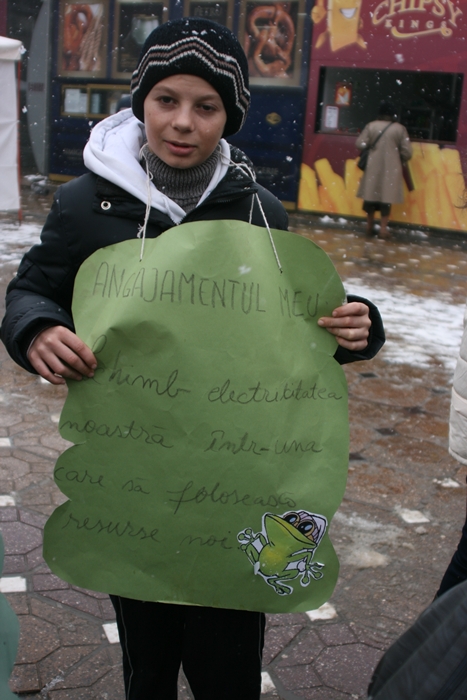 CHIPSY
KINGS
ANGAJAMENTUL MEU
Schimb electrititatea
noastră într-una
care să folosească
resurse noi